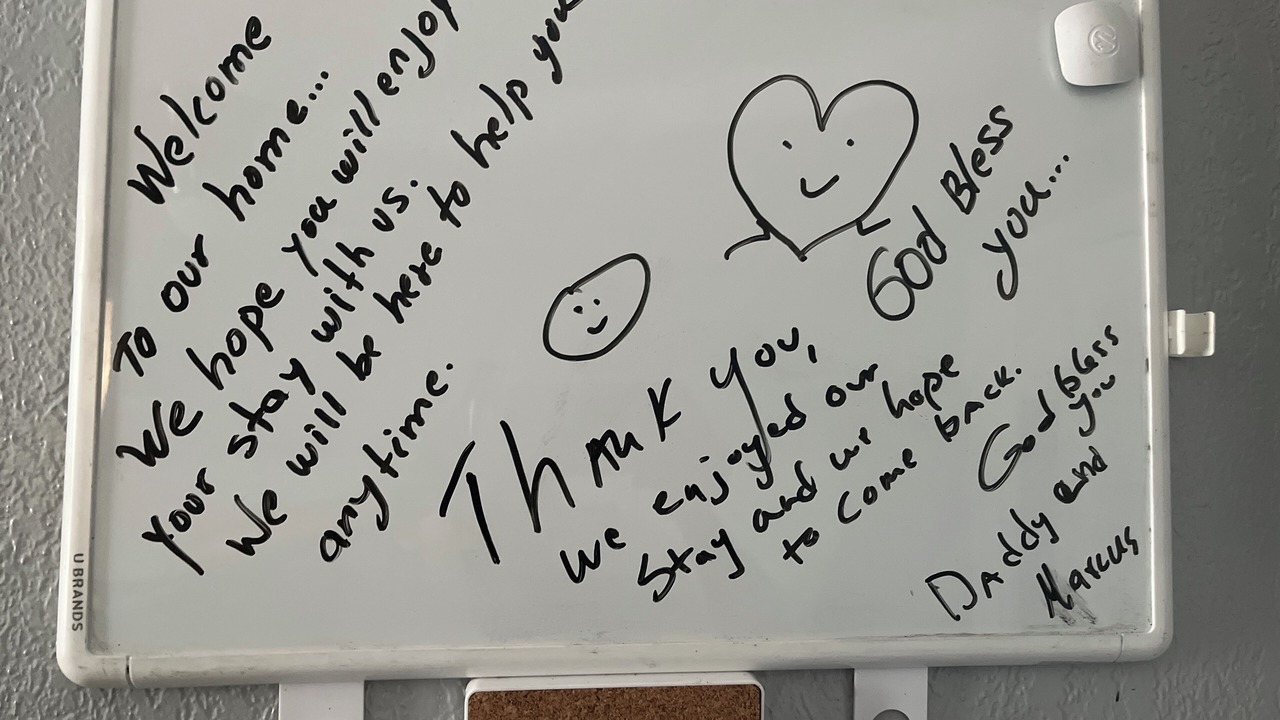 Welcome
To our home...
We hope you will enjoy
your stay with us.
We will be here to help you
anytime.
God Bless
you...
Thank you,
we enjoyed our
stay and we hope
to come back.
God bless
you
Daddy and
Marcus
U BRANDS